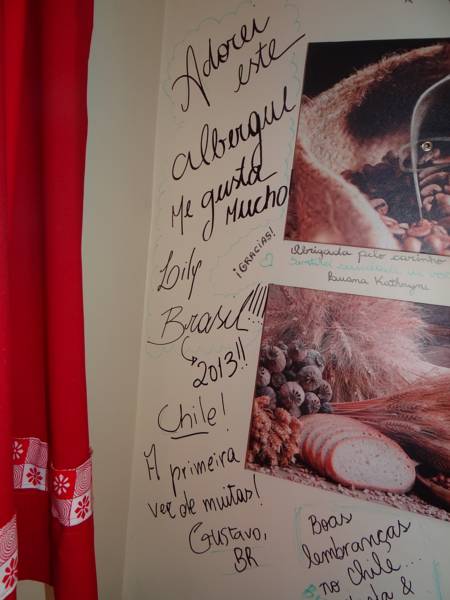 Adorei
este
albergue
Me gusta
Mucho
¡GRACIAS!
Lily
Brasil!!!!
2013!!
Chile!
A primeira
ver de muitas!
Gustavo,
BR
Obrigada pelo carinho
Kathryne
Boas
lembranças
no Chile...
&